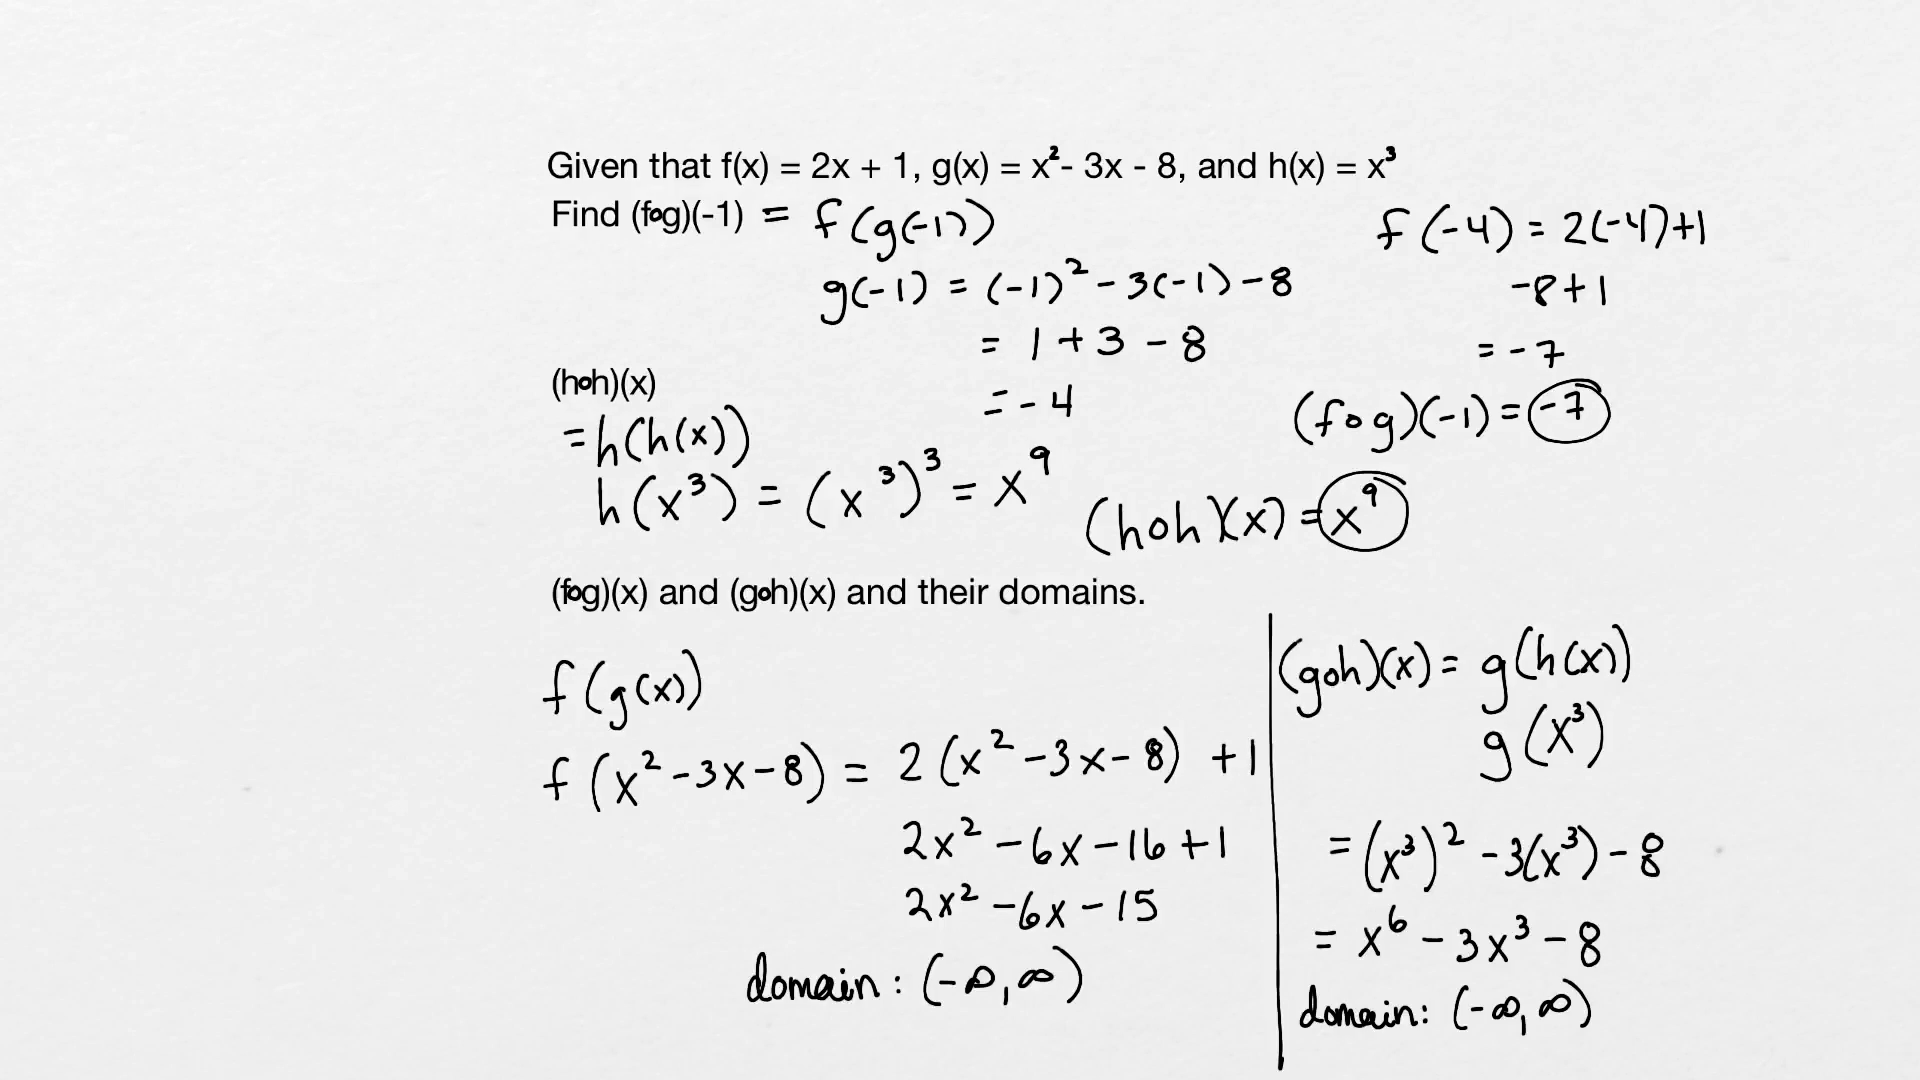 Given that f(x) = 2x + 1, g(x) = x²- 3x - 8, and h(x) = x³
Find (fog)(-1) = f(g(-1))
g(-1) = (-1)² - 3(-1) - 8
= 1 + 3 - 8
= - 4
f(-4) = 2(-4)+1
-8+1
= -7
(fog)(-1) = -7
(hoh)(x)
= h(h(x))
h(x³) = (x³)³ = x⁹
(hoh)(x) = x⁹
(fog)(x) and (goh)(x) and their domains.
f(g(x))
f(x² -3x-8) = 2(x² -3x-8) +1
2x² -6x -16 +1
2x² -6x -15
domain: (-∞,∞)
(goh)(x) = g(h(x))
g(x³)
= (x³)² - 3(x³) - 8
= x⁶ - 3x³ - 8
domain: (-∞,∞)